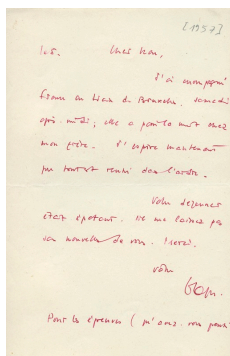 [1957]
Cher Jean,
J'ai accompagné
au train de Bruxelles samedi
après-midi ; elle a passé la nuit chez
mon frère. J'espère maintenant
que tout est rentré dans l'ordre.
Votre déjeuner
était épatant. Ne me laissez pas
sans nouvelles de vous.
vôtre
Pour les épreuves (